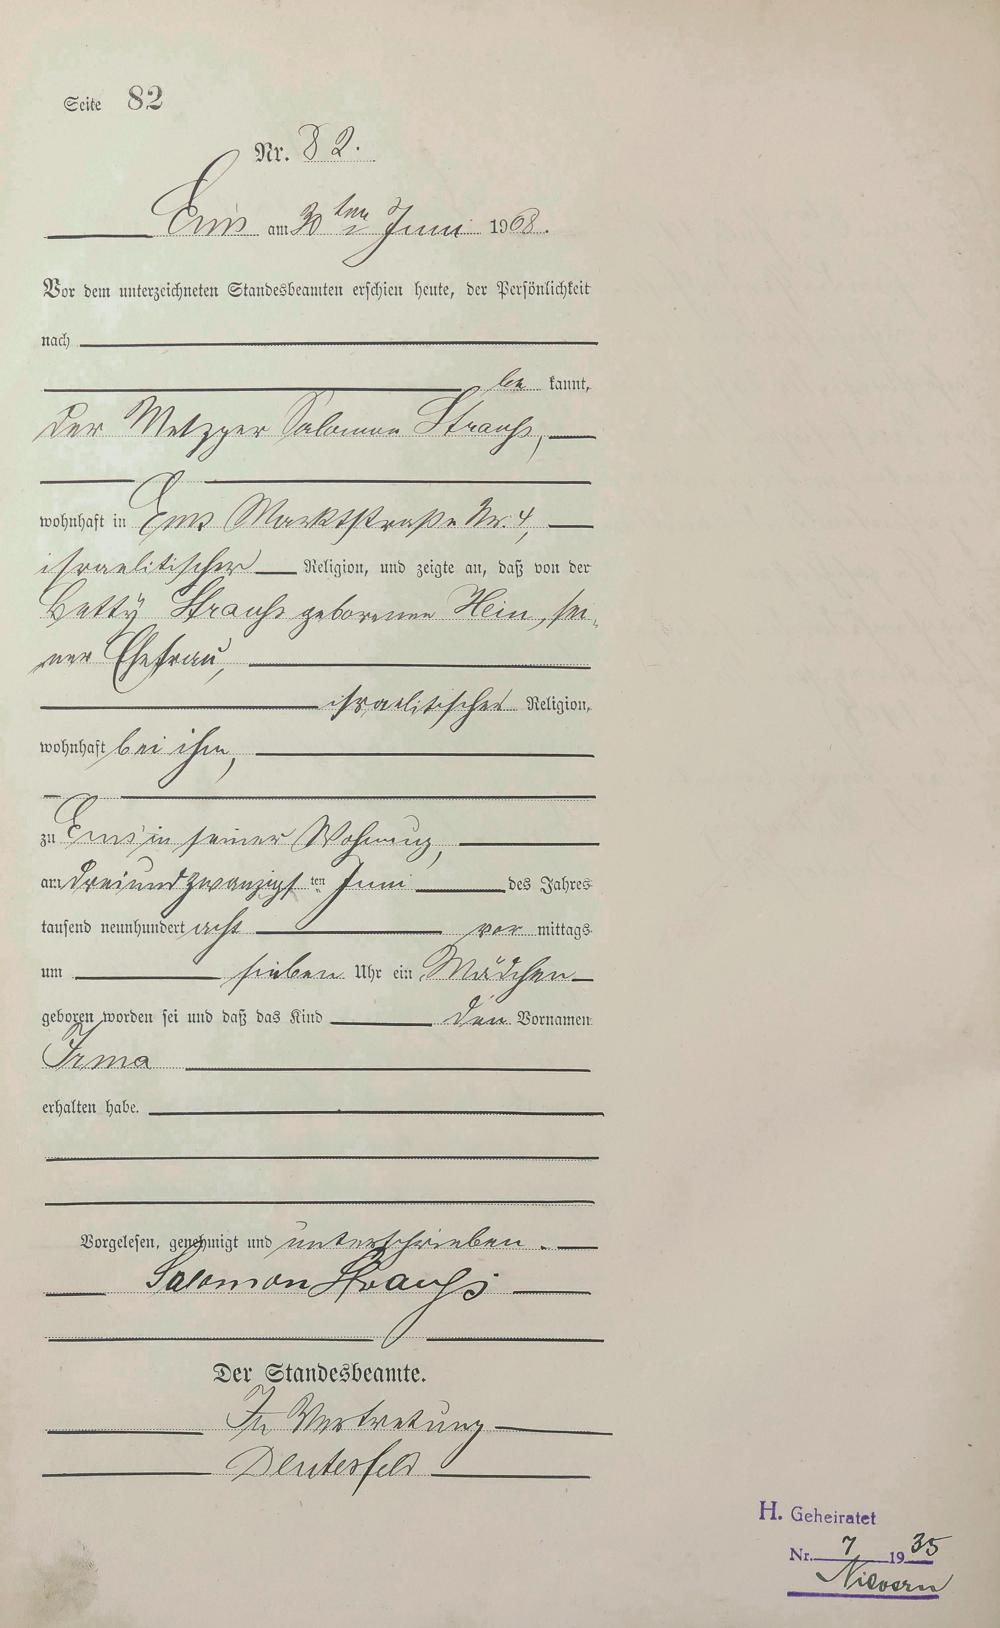 Seite 82
Nr. 82.
Ems am 30ten Juni 1908.
Vor dem unterzeichneten Standesbeamten erschien heute, der Persönlichkeit
nach
be kannt,
der Metzger Salomon Strauß,
wohnhaft in Ems Marktstraße Nr. 4,
israelitischer Religion, und zeigte an, daß von der
Betty Strauß geborenen Hein, sei-
ner Ehefrau,
israelitischer Religion,
wohnhaft bei ihm,
zu Ems in seiner Wohnung,
am dreiundzwanzigsten Juni des Jahres
tausend neunhundert acht vor mittags
um sieben Uhr ein Mädchen
geboren worden sei und daß das Kind den Vornamen
Irma
erhalten habe.
Vorgelesen, genehmigt und unterschrieben.
Salomon Strauß
Der Standesbeamte.
In Vertretung
H. Geheiratet
Nr. 7 1935
Nievern